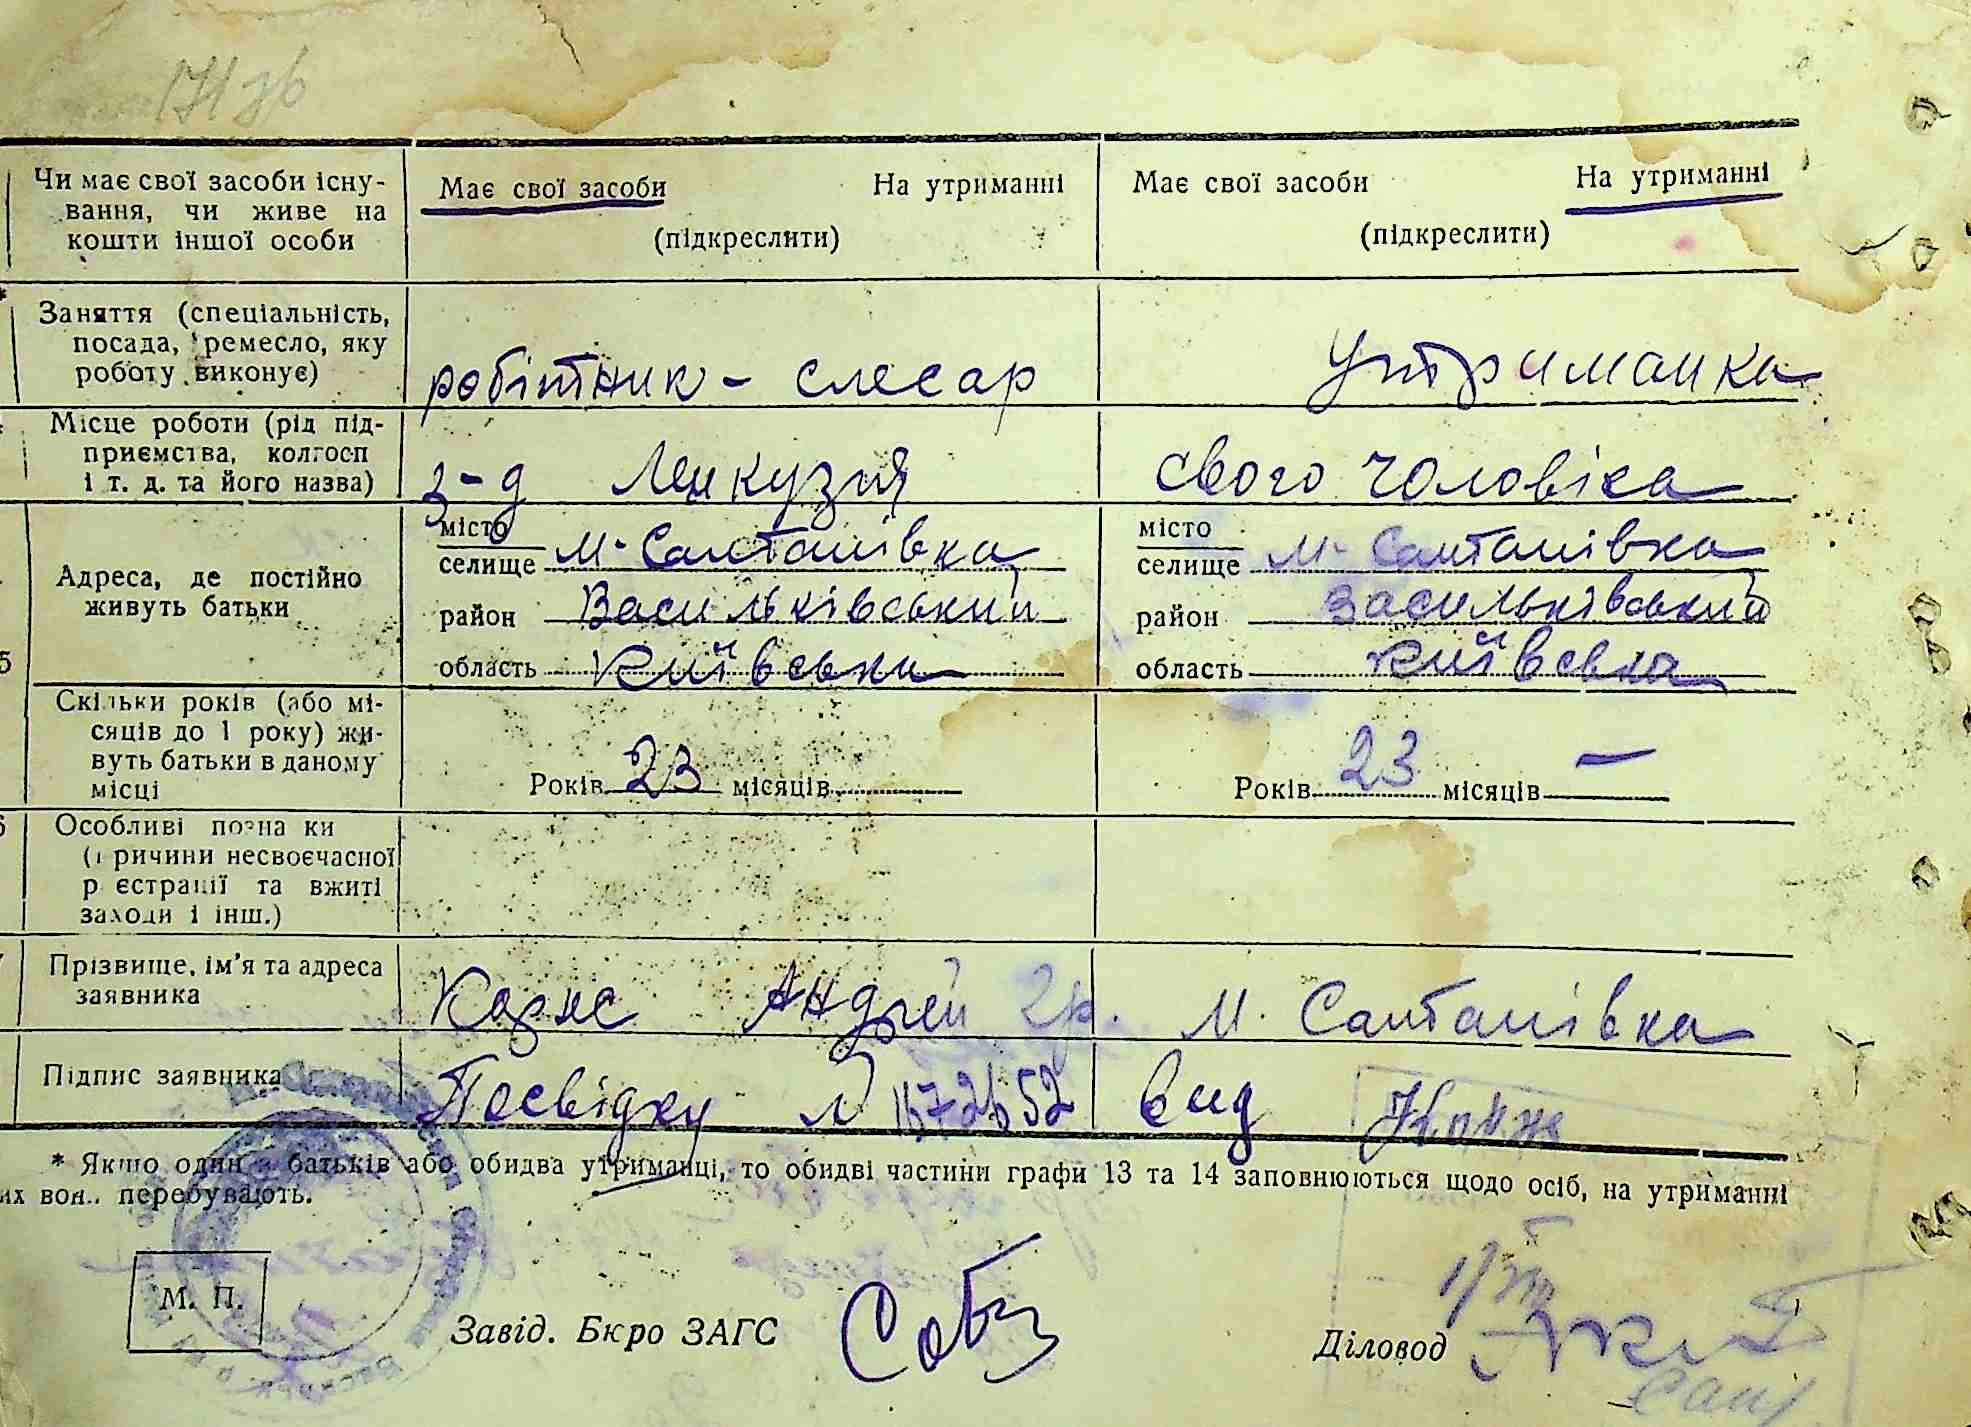 Чи має свої засоби існу-
вання, чи живе на
кошти іншої особи
Має свої засоби На утриманні
(підкреслити)
Має свої засоби На утриманні
(підкреслити)
Заняття (спеціальність,
посада, ремесло, яку
роботу виконує)
робітник - слесар
Утриманка
Місце роботи (рід під-
приємства, колгосп
і т. д. та його назва)
з-д Ленкузня
свого чоловіка
5
Адреса, де постійно
живуть батьки
місто
селище м. Салтанівка
район Васильківський
область Київська
місто
селище м. Салтанівка
район Васильківський
область Київська
Скільки років (або мі-
сяців до 1 року) жи-
вуть батьки в даному
місці
Років 23 місяців
Років 23 місяців —
Особливі позна ки
( ричини несвоєчасної
р єстрації та вжиті
заходи і інш.)
Прізвище, ім'я та адреса
заявника
Андрей гр. м. Салтанівка
Підпис заявника
Посвідку вид
* Якщо один з батьків або обидва утриманці, то обидві частини графи 13 та 14 заповнюються щодо осіб, на утриманні
их вон. перебувають.
М. П.
Завід. Бюро ЗАГС
Діловод